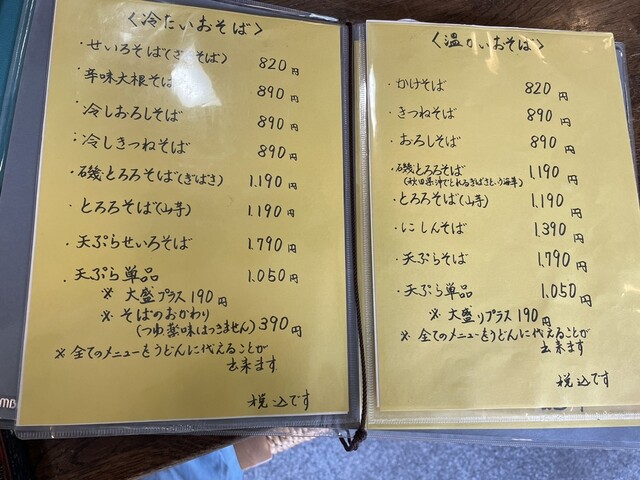 ＜冷たいおそば＞
・せいろそば(ざるそば) 820円
・辛味大根そば 890円
・冷しおろしそば 890円
・冷しきつねそば 890円
・磯とろろそば(ぎばさ) 1,190円
・とろろそば(山芋) 1,190円
・天ぷらせいろそば 1,790円
・天ぷら単品 1,050円
※ 大盛プラス 190円
※ そばのおかわり
(つゆ薬味はつきません) 390円
※ 全てのメニューをうどんに代えることが
出来ます
税込です
MB
＜温かいおそば＞
・かけそば 820円
・きつねそば 890円
・おろしそば 890円
・磯とろろそば 1,190円
(秋田県沖でとれるぎばさという海草)
・とろろそば(山芋) 1,190円
・にしんそば 1,390円
・天ぷらそば 1,790円
・天ぷら単品 1,050円
※ 大盛りプラス 190円
※ 全てのメニューをうどんに代えることが
出来ます
税込です